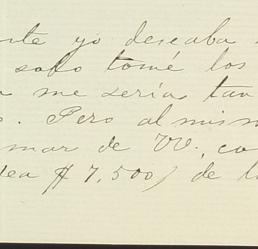 nte yo deseaba
solo tomé los
me serían tan
Pero al mism
mar de VV., co
dea $ 7,500) de l